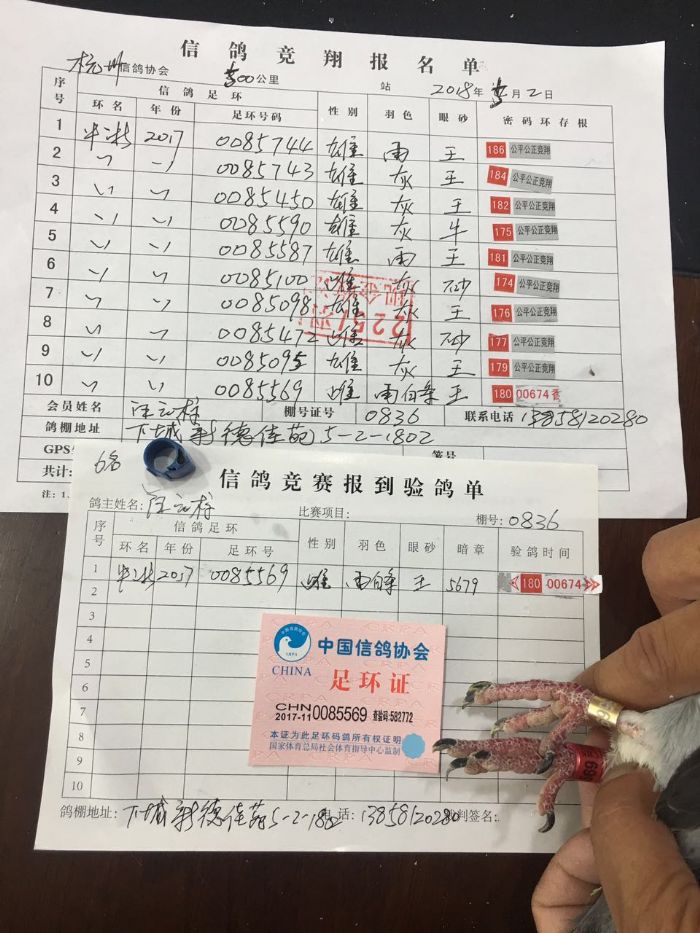 信鸽竞翔报名单
杭州信鸽协会 500公里 站 2018年 月2日
序号 信鸽足环 性别 羽色 眼砂 密码环存根
环名 年份 足环号码
1 2017 0085744 雄 雨 王 186 公平公正竞翔
2 〃 〃 0085743 雄 灰 王 184 公平公正竞翔
3 〃 〃 0085450 雄 灰 王 182 公平公正竞翔
4 〃 〃 0085590 雄 灰 牛 175 公平公正竞翔
5 〃 〃 0085587 雄 雨 王 181 公平公正竞翔
6 〃 〃 0085100 雌 灰 砂 174 公平公正竞翔
7 〃 〃 0085098 雄 灰 王 176 公平公正竞翔
8 〃 〃 0085472 雌 灰 砂 177 公平公正竞翔
9 〃 〃 0085095 雄 灰 王 179 公平公正竞翔
10 〃 〃 0085569 雌 雨白条 王 180 00674
会员姓名 汪 棚号证号 0836 联系电话 13858120280
鸽棚地址 下城新德佳苑5-2-1802
GPS 签号
共计:
注:1.
6名
信鸽竞赛报到验鸽单
鸽主姓名: 汪 比赛项目: 棚号: 0836
序号 信鸽足环 性别 羽色 眼砂 暗章 验鸽时间
环名 年份 足环号
1 2017 0085569 雌 雨白条 王 5679 180 00674
2
3
4
5
6
7
8
9
10
中国信鸽协会
CHINA
足环证
CHN
2017-11 0085569 查验码:582772
本证为此足环码鸽所有权证明
国家体育总局社会体育指导中心监制
鸽棚地址: 下城新德佳苑5-2-1802 电话: 13858120280 裁判签名: